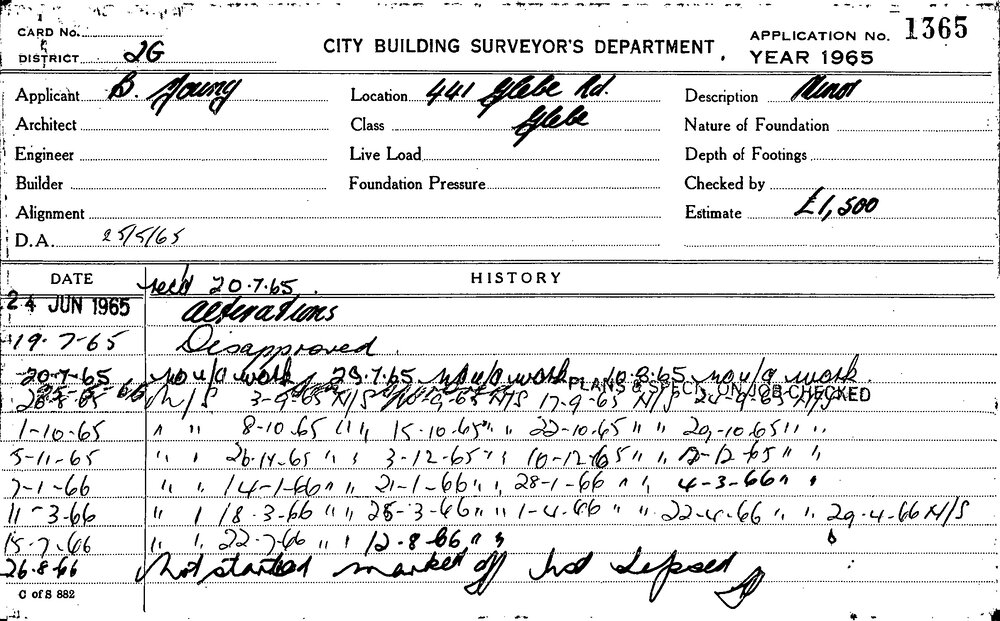 CARD No.
DISTRICT 2G
CITY BUILDING SURVEYOR'S DEPARTMENT.
APPLICATION No. 1365
YEAR 1965
Applicant B. Young
Location 441 Glebe Rd.
Description Minor
Architect
Class Glebe
Nature of Foundation
Engineer
Live Load
Depth of Footings
Builder
Foundation Pressure
Checked by
Alignment
Estimate £1,500
D.A. 25/5/65
DATE
HISTORY
rec'd 20.7.65.
24 JUN 1965 alterations
19.7-65 Disapproved.
20-7-65 no u/a work, 23.7.65 no u/a work 10.8.65 no u/a work.
PLANS & SPECN. ON JOB CHECKED
N/S 3-9-65 N/S N/S 17-9-65 N/S 24-9-65 N/S
1-10-65 " " 8-10.65 " " 15-10.65 " " 22-10.65 " " 29-10.65 " "
5-11-65 " " 26-11-65 " " 3-12-65 " " 10-12-65 " " 12-65 " "
7-1-66 " " 14-1-66 " " 21-1-66 " " 28-1-66 " " 4-3-66 " "
11-3-66 " " 18.3-66 " " 25-3-66 " " 1-4-66 " " 22-4-66 " " 29.4-66 N/S
15-7-66 " " 22-7-66 " " 12-8-66 " "
26.8-66 Not started marked off
C of S 882